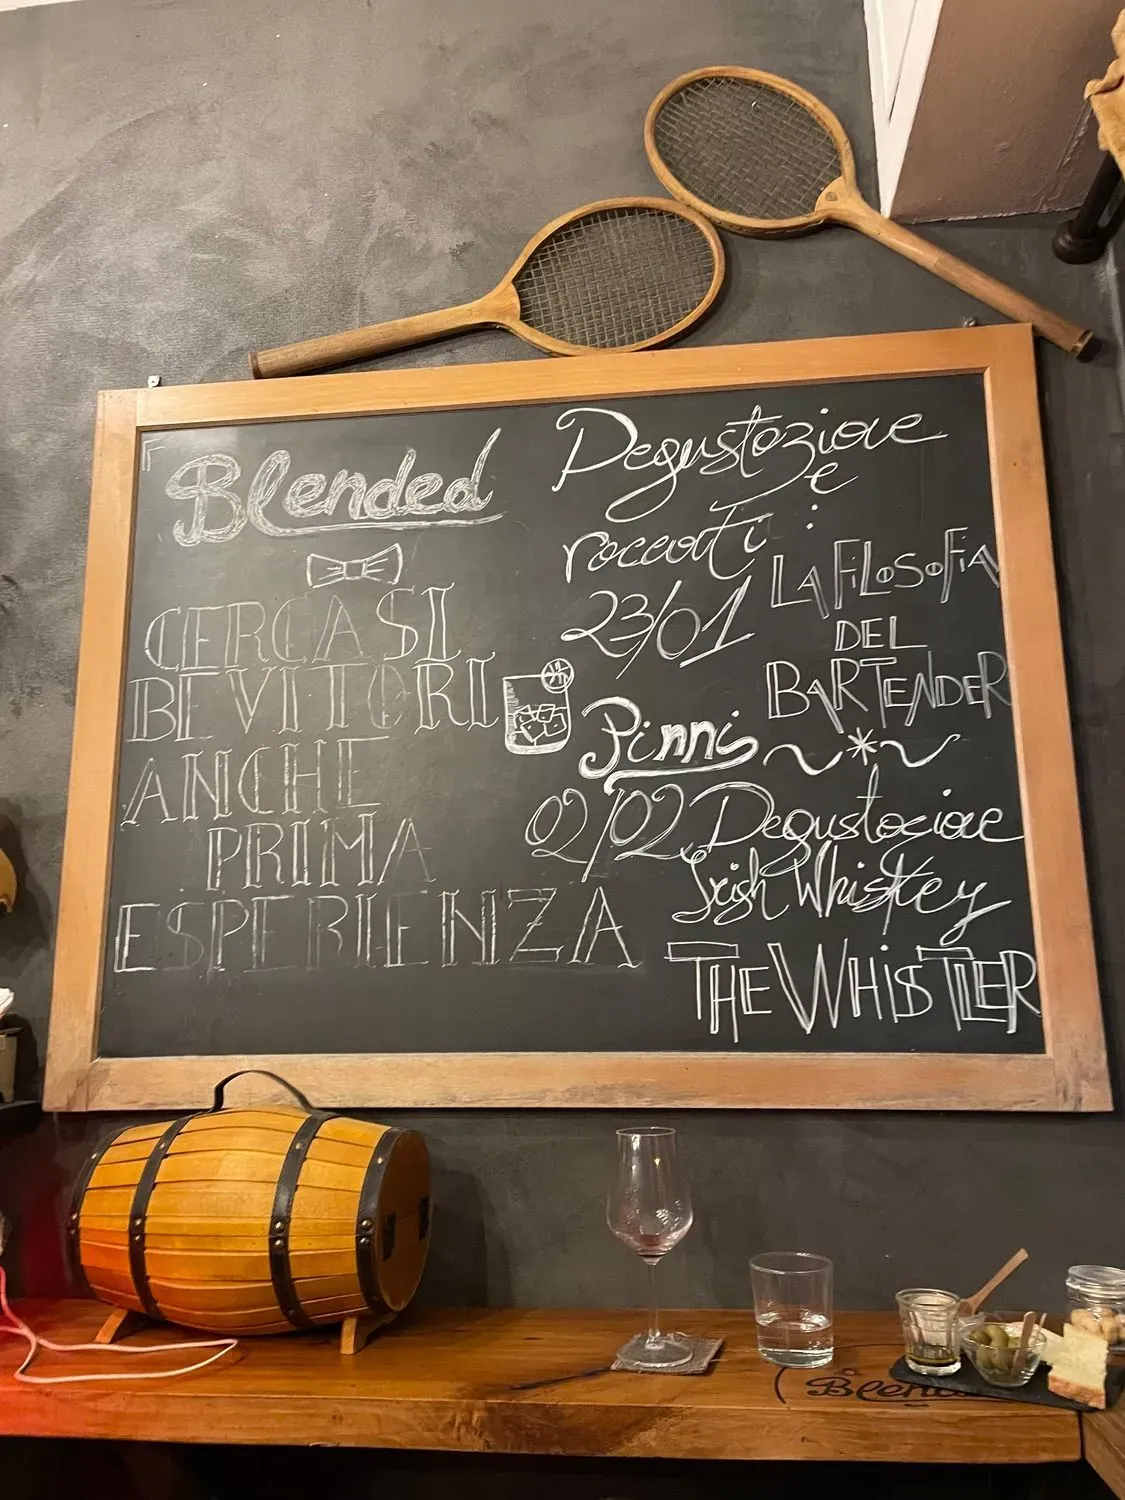 Blended
CERCASI
BEVITORI
ANCHE
PRIMA
ESPERIENZA
Degustazione
e
racconti :
23/01
LA FiLoSoFiA
DEL
BARTENDER
Pinni
02/02 Degustazione
Irish Whiskey
THE WHiSTLER